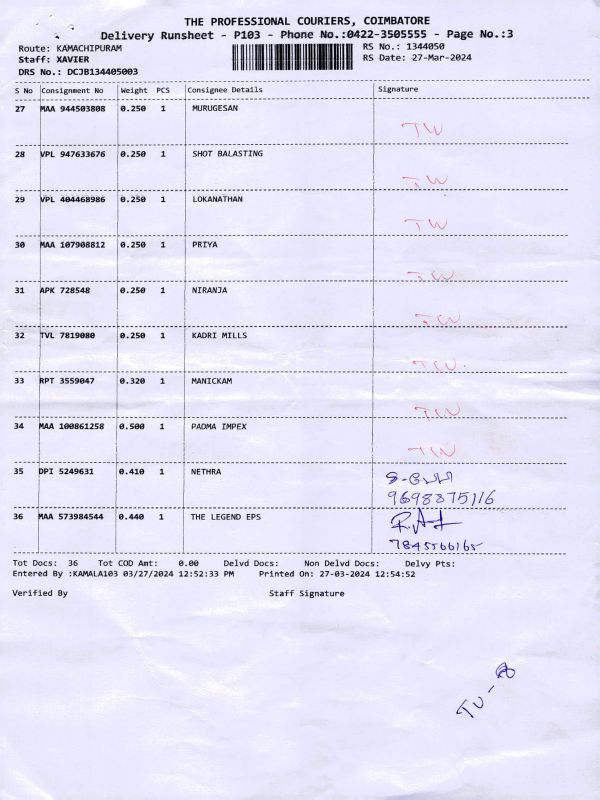 THE PROFESSIONAL COURIERS, COIMBATORE
Delivery Runsheet - P103 - Phone No.:0422-3505555 - Page No.:3
Route: KAMACHIPURAM RS No.: 1344050
Staff: XAVIER RS Date: 27-Mar-2024
DRS No.: DCJB134405003
S No Consignment No Weight PCS Consignee Details Signature
27 MAA 944503808 0.250 1 MURUGESAN
TW
28 VPL 947633676 0.250 1 SHOT BALASTING
TW
29 VPL 404468986 0.250 1 LOKANATHAN
TW
30 MAA 107908812 0.250 1 PRIYA
TW
31 APK 728548 0.250 1 NIRANJA
TW
32 TVL 7819080 0.250 1 KADRI MILLS
TW
33 RPT 3559047 0.320 1 MANICKAM
TW
34 MAA 100861258 0.500 1 PADMA IMPEX
TW
35 DPI 5249631 0.410 1 NETHRA
9698375116
36 MAA 573984544 0.440 1 THE LEGEND EPS
7845566165
Tot Docs: 36 Tot COD Amt: 0.00 Delvd Docs: Non Delvd Docs: Delvy Pts:
Entered By :KAMALA103 03/27/2024 12:52:33 PM Printed On: 27-03-2024 12:54:52
Verified By Staff Signature